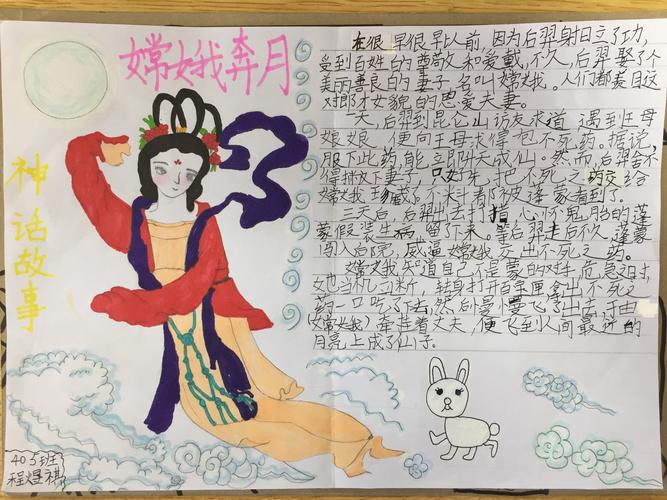 嫦娥奔月
神话故事
在很早很早以前，因为后羿射日立了功，
受到百姓的尊敬和爱戴，不久，后羿娶了个
美丽善良的妻子，名叫嫦娥。人们都羡日这
对郎才女貌的恩爱夫妻。
一天，后羿到昆仑山访友求道，遇到王母
娘娘，便向王母求得包不死药。据说，
服下此药，能立即升天成仙。然而，后羿舍不
得抛下妻子，只好先把不死之药交给
嫦娥珍藏了。不料者都被逢蒙看到了。
三天后，后羿出去打猎，心怀鬼胎的逢
蒙假装生病，留了下来。等后羿走后不久，逢蒙
闯入后院，威逼嫦娥交出不死之药。
嫦娥知道自己不是蒙的对手，危急之时
她当机立断，转身打开百宝匣拿出不死之
药一口吃了下去，然后慢慢飞了出去，于由
嫦娥牵挂着丈夫，便飞到人间最近的
月亮上成了仙子。
405班
程煜祺